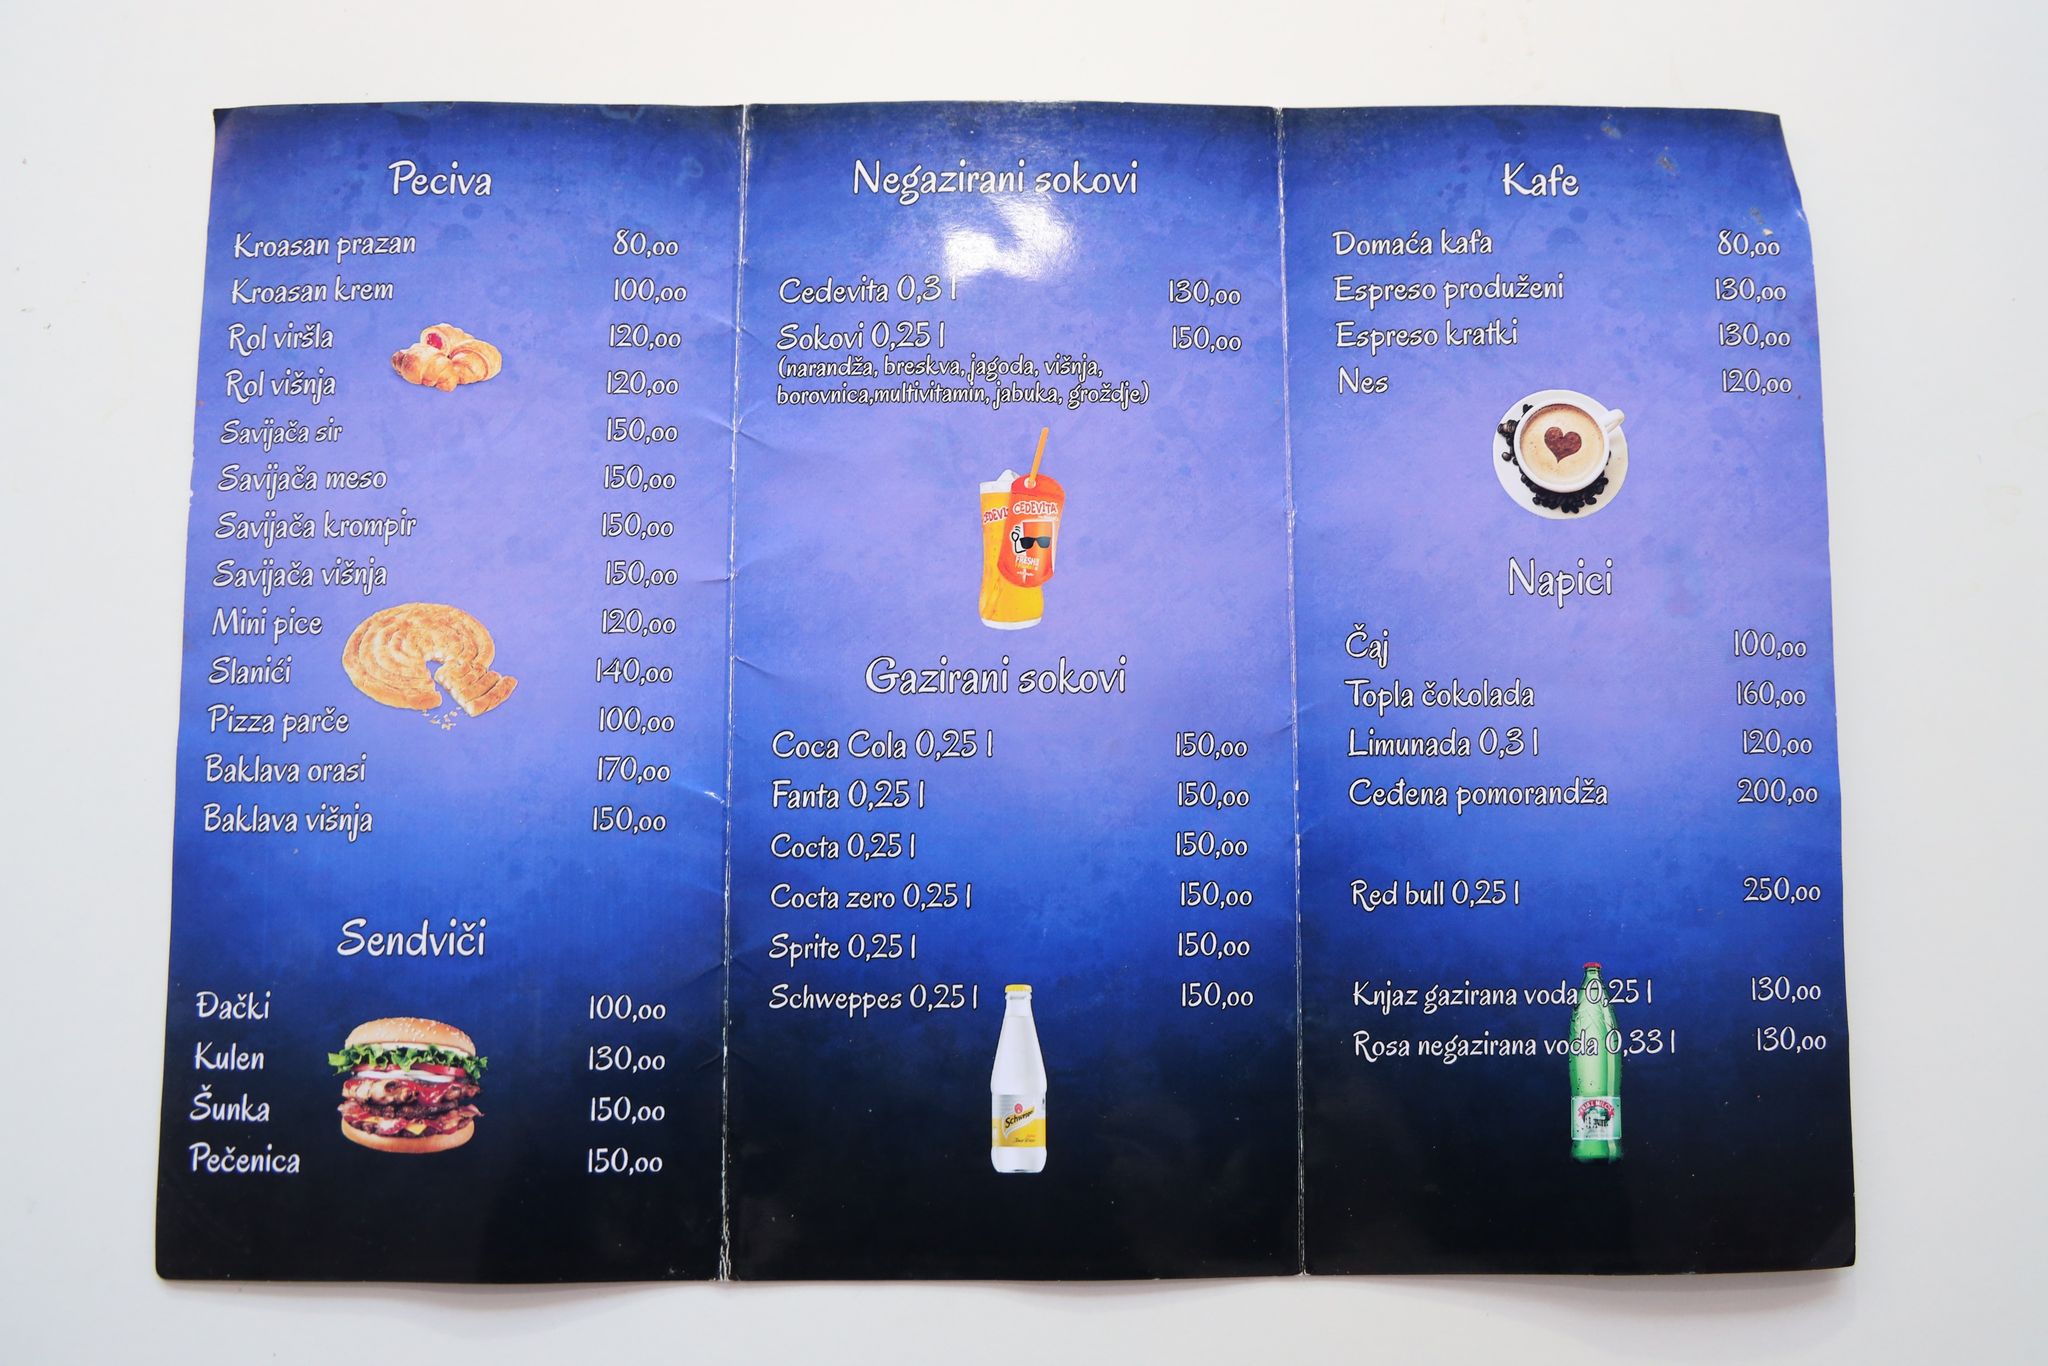 Peciva
Kroasan prazan 80,00
Kroasan krem 100,00
Rol viršla 120,00
Rol višnja 120,00
Savijača sir 150,00
Savijača meso 150,00
Savijača krompir 150,00
Savijača višnja 150,00
Mini pice 120,00
Slanići 140,00
Pizza parče 100,00
Baklava orasi 170,00
Baklava višnja 150,00
Sendviči
Đački 100,00
Kulen 130,00
Šunka 150,00
Pečenica 150,00
Negazirani sokovi
Cedevita 0,3 l 130,00
Sokovi 0,25 l 150,00
(narandža, breskva, jagoda, višnja,
borovnica,multivitamin, jabuka, groždje)
CEDEVITA
FRESH
Gazirani sokovi
Coca Cola 0,25 l 150,00
Fanta 0,25 l 150,00
Cocta 0,25 l 150,00
Cocta zero 0,25 l 150,00
Sprite 0,25 l 150,00
Schweppes 0,25 l 150,00
Schweppes
Kafe
Domaća kafa 80,00
Espreso produženi 130,00
Espreso kratki 130,00
Nes 120,00
Napici
Čaj 100,00
Topla čokolada 160,00
Limunada 0,3 l 120,00
Ceđena pomorandža 200,00
Red bull 0,25 l 250,00
Knjaz gazirana voda 0,25 l 130,00
Rosa negazirana voda 0,33 l 130,00